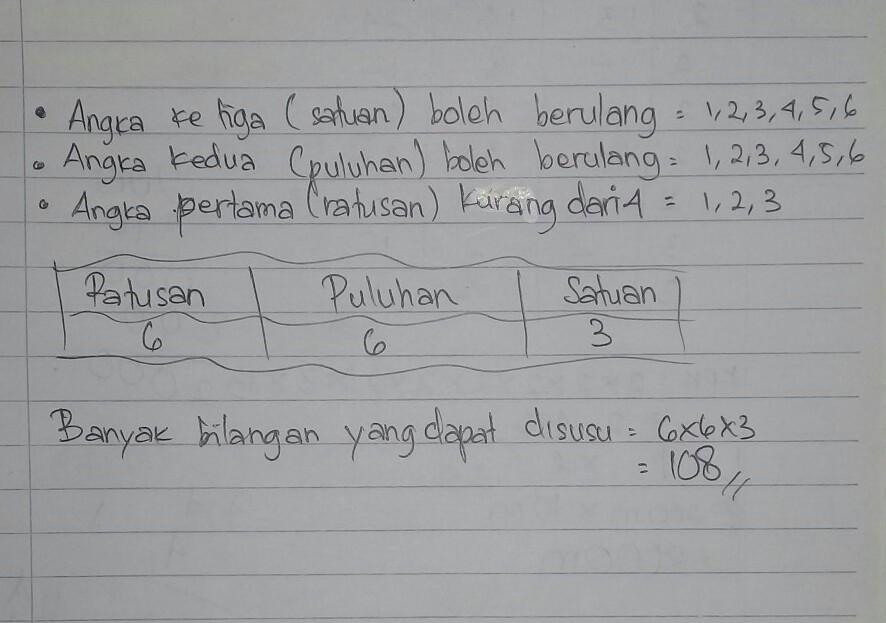 • Angka ke tiga (satuan) boleh berulang = 1,2,3,4,5,6
• Angka kedua (puluhan) boleh berulang = 1,2,3, 4,5,6
• Angka pertama (ratusan) kurang dari 4 = 1, 2, 3
Ratusan Puluhan Satuan
6 6 3
Banyak bilangan yang dapat disusu = 6x6x3
= 108 //